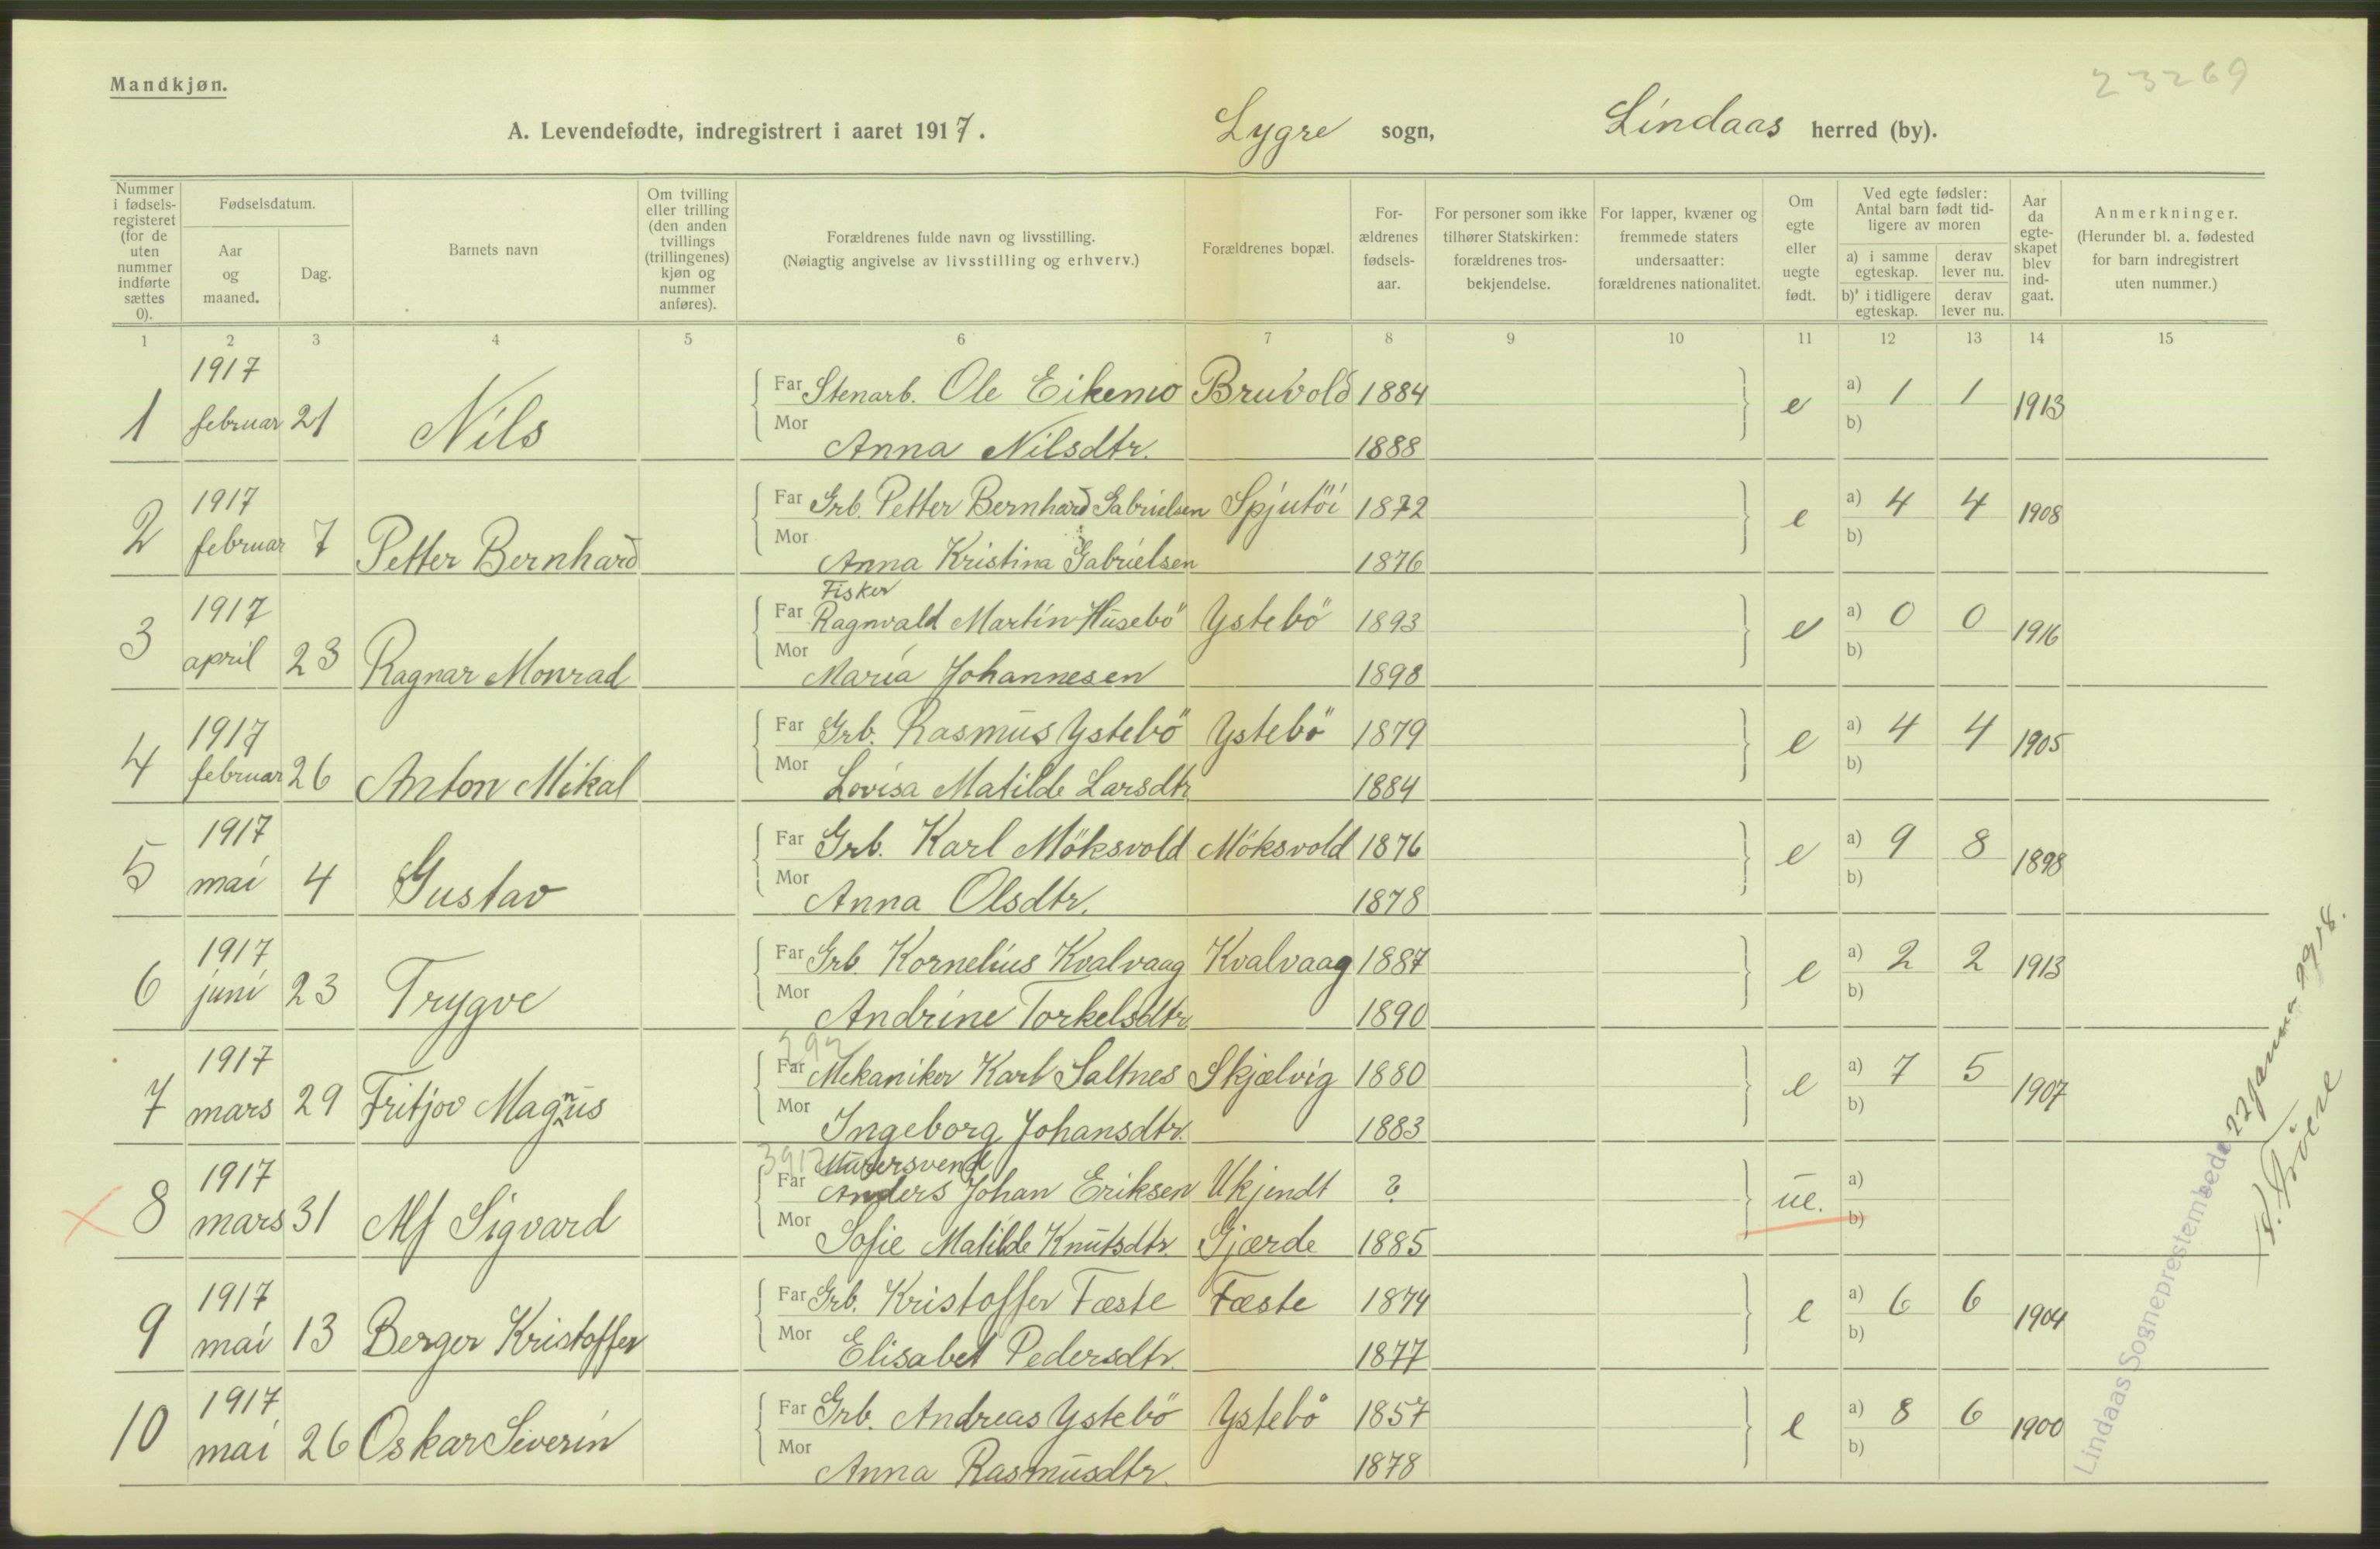 Mandkjøn.
23269
A. Levendefødte, indregistrert i aaret 1917. Lygre sogn, Lindaas herred (by).
Nummer i fødsels-registeret (for de uten nummer indførte sættes 0).
Fødselsdatum.
Aar og maaned.
Dag.
Barnets navn
Om tvilling eller trilling (den anden tvillings (trillingenes) kjøn og nummer anføres).
Forældrenes fulde navn og livsstilling.
(Nøiagtig angivelse av livsstilling og erhverv.)
Forældrenes bopæl.
For-ældrenes fødsels-aar.
For personer som ikke tilhører Statskirken: forældrenes tros-bekjendelse.
For lapper, kvæner og fremmede staters undersaatter: forældrenes nationalitet.
Om egte eller uegte født.
Ved egte fødsler: Antal barn født tid-ligere av moren
a) i samme egteskap.
derav lever nu.
b) i tidligere egteskap.
derav lever nu.
Aar da egte-skapet blev ind-gaat.
Anmerkninger.
(Herunder bl. a. fødested for barn indregistrert uten nummer.)
1 2 3 4 5 6 7 8 9 10 11 12 13 14 15
1 1917 februar 21 Nils Far Stenarb. Ole Eikemo Bruvold 1884 e a) 1 1 1913
Mor Anna Nilsdtr. 1888 b)
2 1917 februar 7 Petter Bernhard Far Grb. Petter Bernhard Gabrielsen Spjutöi 1872 e a) 4 4 1908
Mor Anna Kristina Gabrielsen 1876 b)
Fisker
3 1917 april 23 Ragnar Monrad Far Ragnvald Martin Husebö Ystebö 1893 e a) 0 0 1916
Mor Maria Johannesen 1898 b)
4 1917 februar 26 Anton Mikal Far Grb. Rasmus Ystebö Ystebö 1879 e a) 4 4 1905
Mor Lovisa Matilde Larsdtr 1884 b)
5 1917 mai 4 Gustav Far Grb. Karl Möksvold Möksvold 1876 e a) 9 8 1898
Mor Anna Olsdtr. 1878 b)
6 1917 juni 23 Trygve Far Grb. Kornelius Kvalvaag Kvalvaag 1887 e a) 2 2 1913
Mor Andrine Torkelsdtr. 1890 b)
7 1917 mars 29 Fritjov Magnus Far Mekaniker Karl Saltnes Skjælvig 1880 e a) 7 5 1907
Mor Ingeborg Johansdtr. 1883 b)
Murersvend
8 1917 mars 31 Alf Sigvard Far Anders Johan Eriksen Ukjendt ? ue. a)
Mor Sofie Matilde Knutsdtr. Gjærde 1885 b)
9 1917 mai 13 Berger Kristoffer Far Grb. Kristoffer Fæste Fæste 1874 e a) 6 6 1904
Mor Elisabet Pedersdtr. 1877 b)
10 1917 mai 26 Oskar Severin Far Grb. Andreas Ystebö Ystebö 1857 e a) 8 6 1900
Mor Anna Rasmusdtr. 1878 b)
Lindaas Sogneprestembede 22